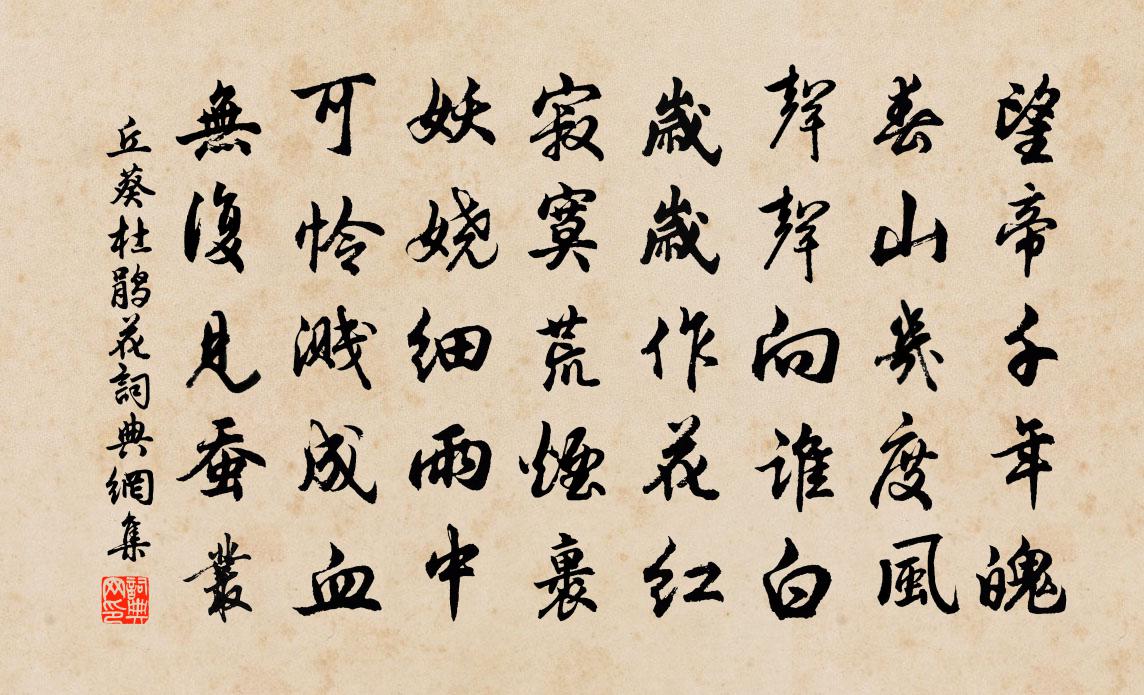 望帝千年魄
春山幾度風
聲聲向誰白
歲歲作花紅
寂寞荒煙裹
妖嬈細雨中
可怜溅成血
無復見蚕叢
丘葵杜鹃花詞典網集
詞典網印